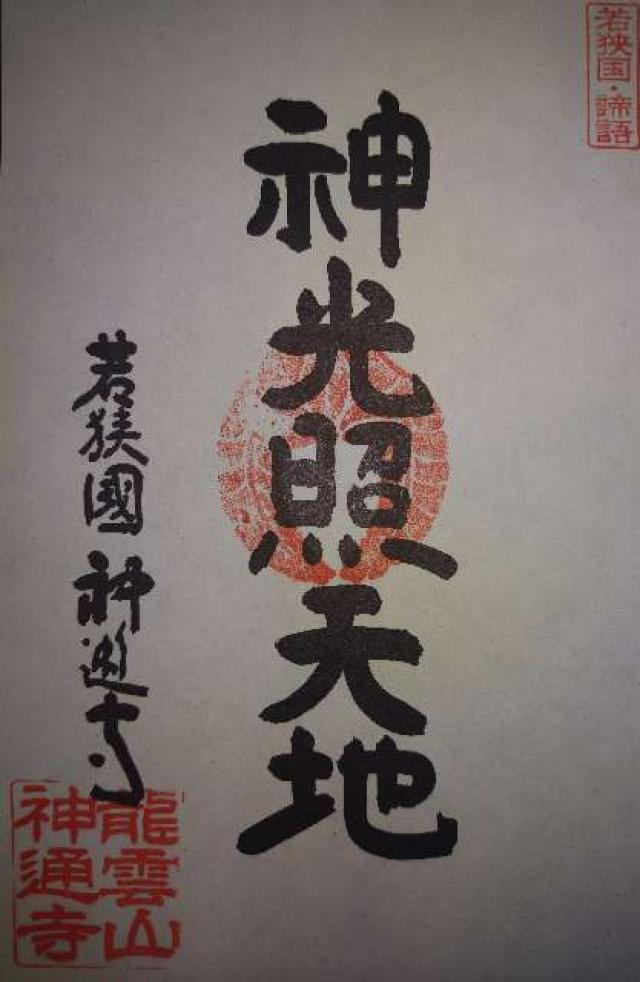 若狭国・諦語
神光照天地
若狭國 神通寺
龍雲山
神通寺